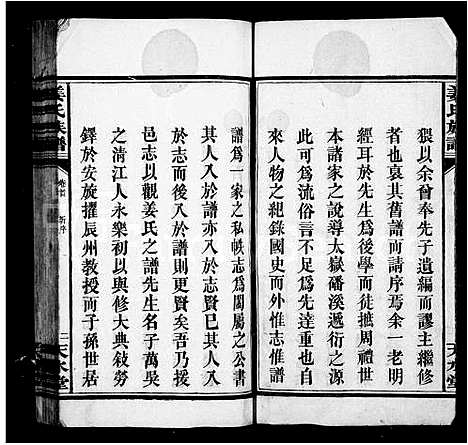 姜氏族譜
猥以余曾奉先子遺編而謬主繼修
者也哀其舊譜而請序焉余一老明
經耳於先生為後學而徒摭周禮世
本諸家之說導太嶽磻溪遞衍之源
此可為流俗言不足為先達重也有
來人物之紀錄國史而外惟志惟譜
天水堂
譜為一家之私帙志為闔屬之公書
其人入於譜亦入於志賢矣乃其人
入於志而後入於譜則更賢矣吾乃
邑志以觀姜氏之譜先生名子萬吳
之清江人永樂初以與修大典敘勞
鐸於安旋擢辰州教授而于孫世居
姜氏族譜
卷首
新序
二
天水堂